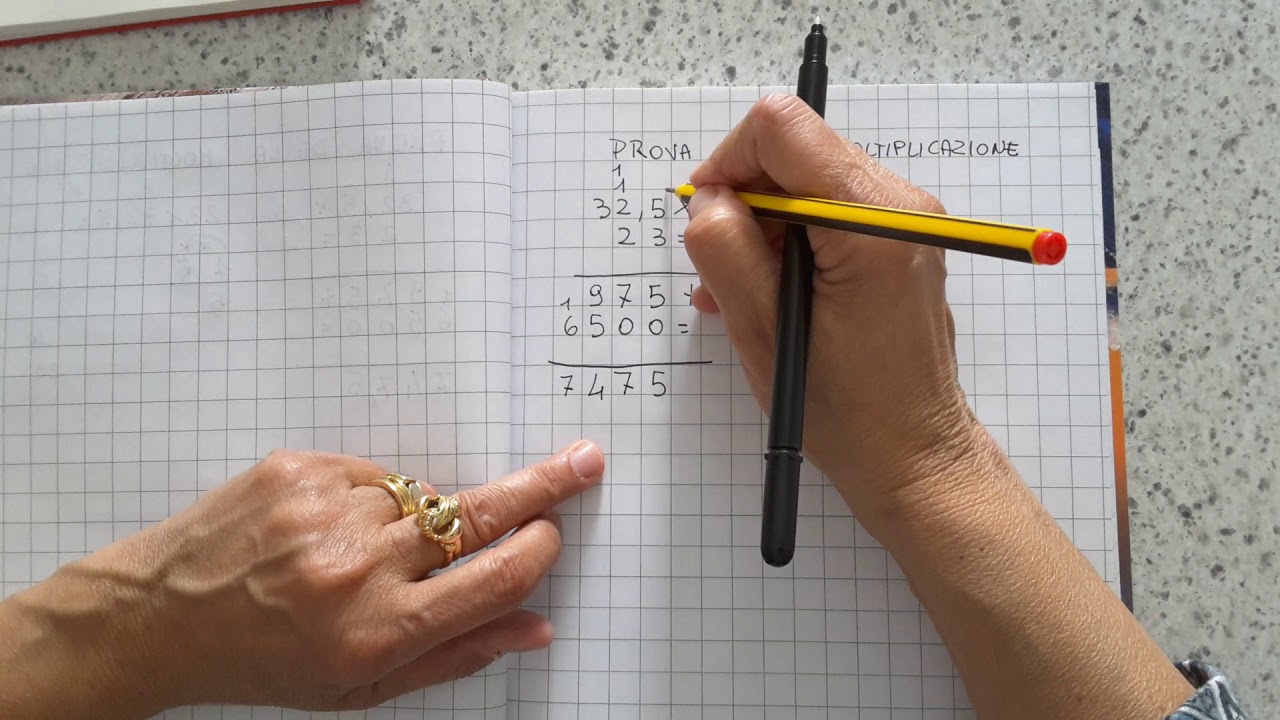 PROVA OLTIPLICAZIONE
1
1
32,5 ×
23=
1975+
6500=
7475